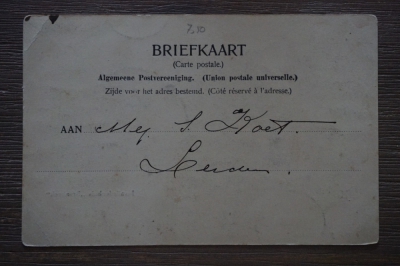 7.50
BRIEFKAART
(Carte postale.)
Algemeene Postvereeniging. (Union postale universelle.)
Zijde voor het adres bestemd. (Côté réservé à l'adresse.)
AAN Mej S. Koet.
Leiden.